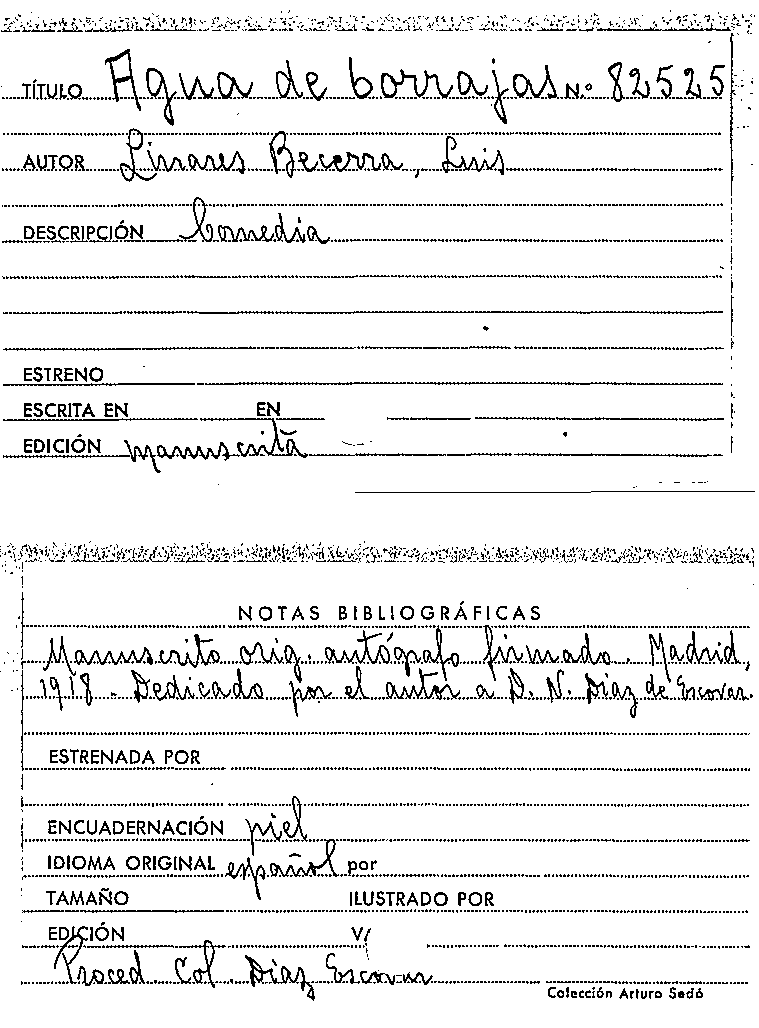 TÍTULO Agua de borrajas N.º 82525
AUTOR Linares Becerra, Luis
DESCRIPCIÓN Comedia
ESTRENO
ESCRITA EN EN
EDICIÓN manuscrita
NOTAS BIBLIOGRÁFICAS
Manuscrito orig. autógrafo firmado. Madrid,
1918. Dedicado por el autor a D. N. Díaz de Escovar.
ESTRENADA POR
ENCUADERNACIÓN piel
IDIOMA ORIGINAL español por
TAMAÑO ILUSTRADO POR
EDICIÓN V/
Proced. Col. Díaz Escovar
Colección Arturo Sedó